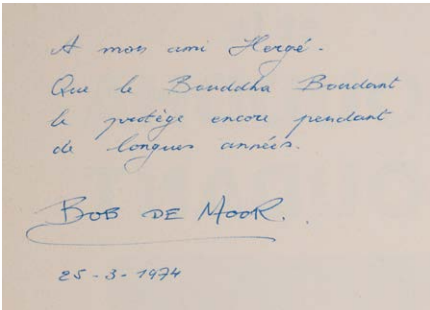 A mon ami Hergé.
Que le Bouddha Boudant
le protège encore pendant
de longues années.
BOB DE MOOR.
25-3-1974